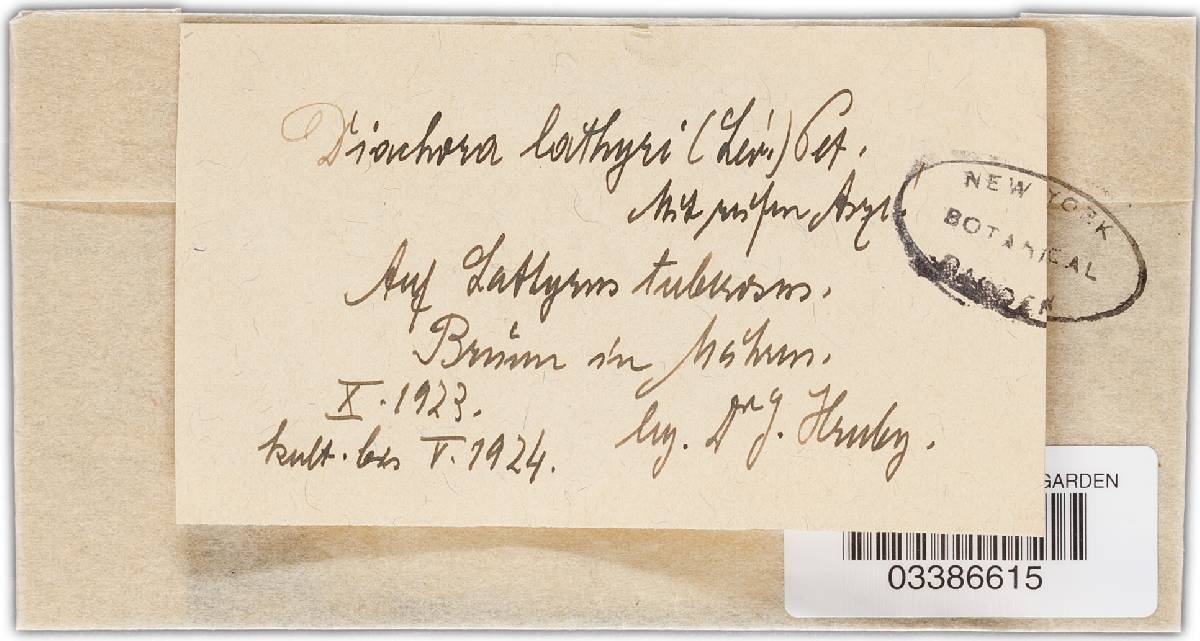 Diachora lathyri (Lév.) Pet.
Mit reifen
Auf Lathyrus tuberosus.
Brünn in Mähren.
X. 1923.
kult. bis V. 1924.
leg. Dr J. Hruby.
NEW YORK
BOTANICAL
GARDEN
GARDEN
03386615